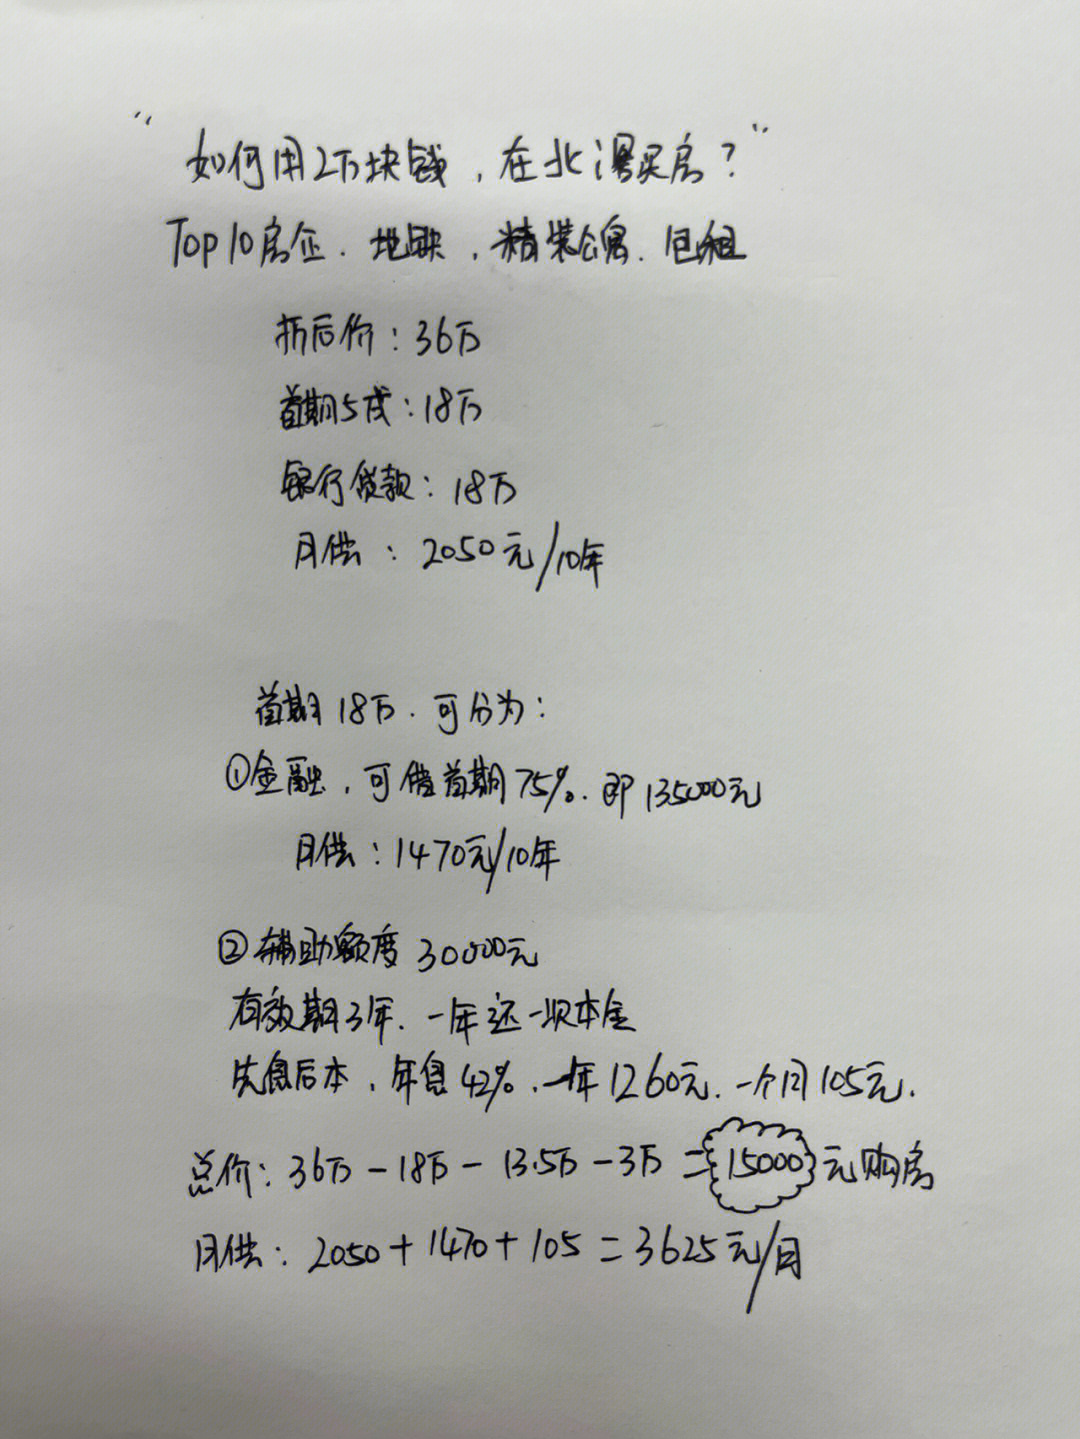 “如何用2万块钱，在北滘买房？”
Top10房企．地铁，精装公寓．包租
折后价：36万
首期5成：18万
银行贷款：18万
月供：2050元/10年
首期18万．可分为：
①金融，可借首期75%．即135000元
月供：1470元/10年
②辅助额度30000元
有效期3年．一年还一次本金
先息后本，年息4.2%．一年1260元．一个月105元．
总价：36万－18万－13.5万－3万＝15000元购房
月供：2050＋1470＋105＝3625元/月